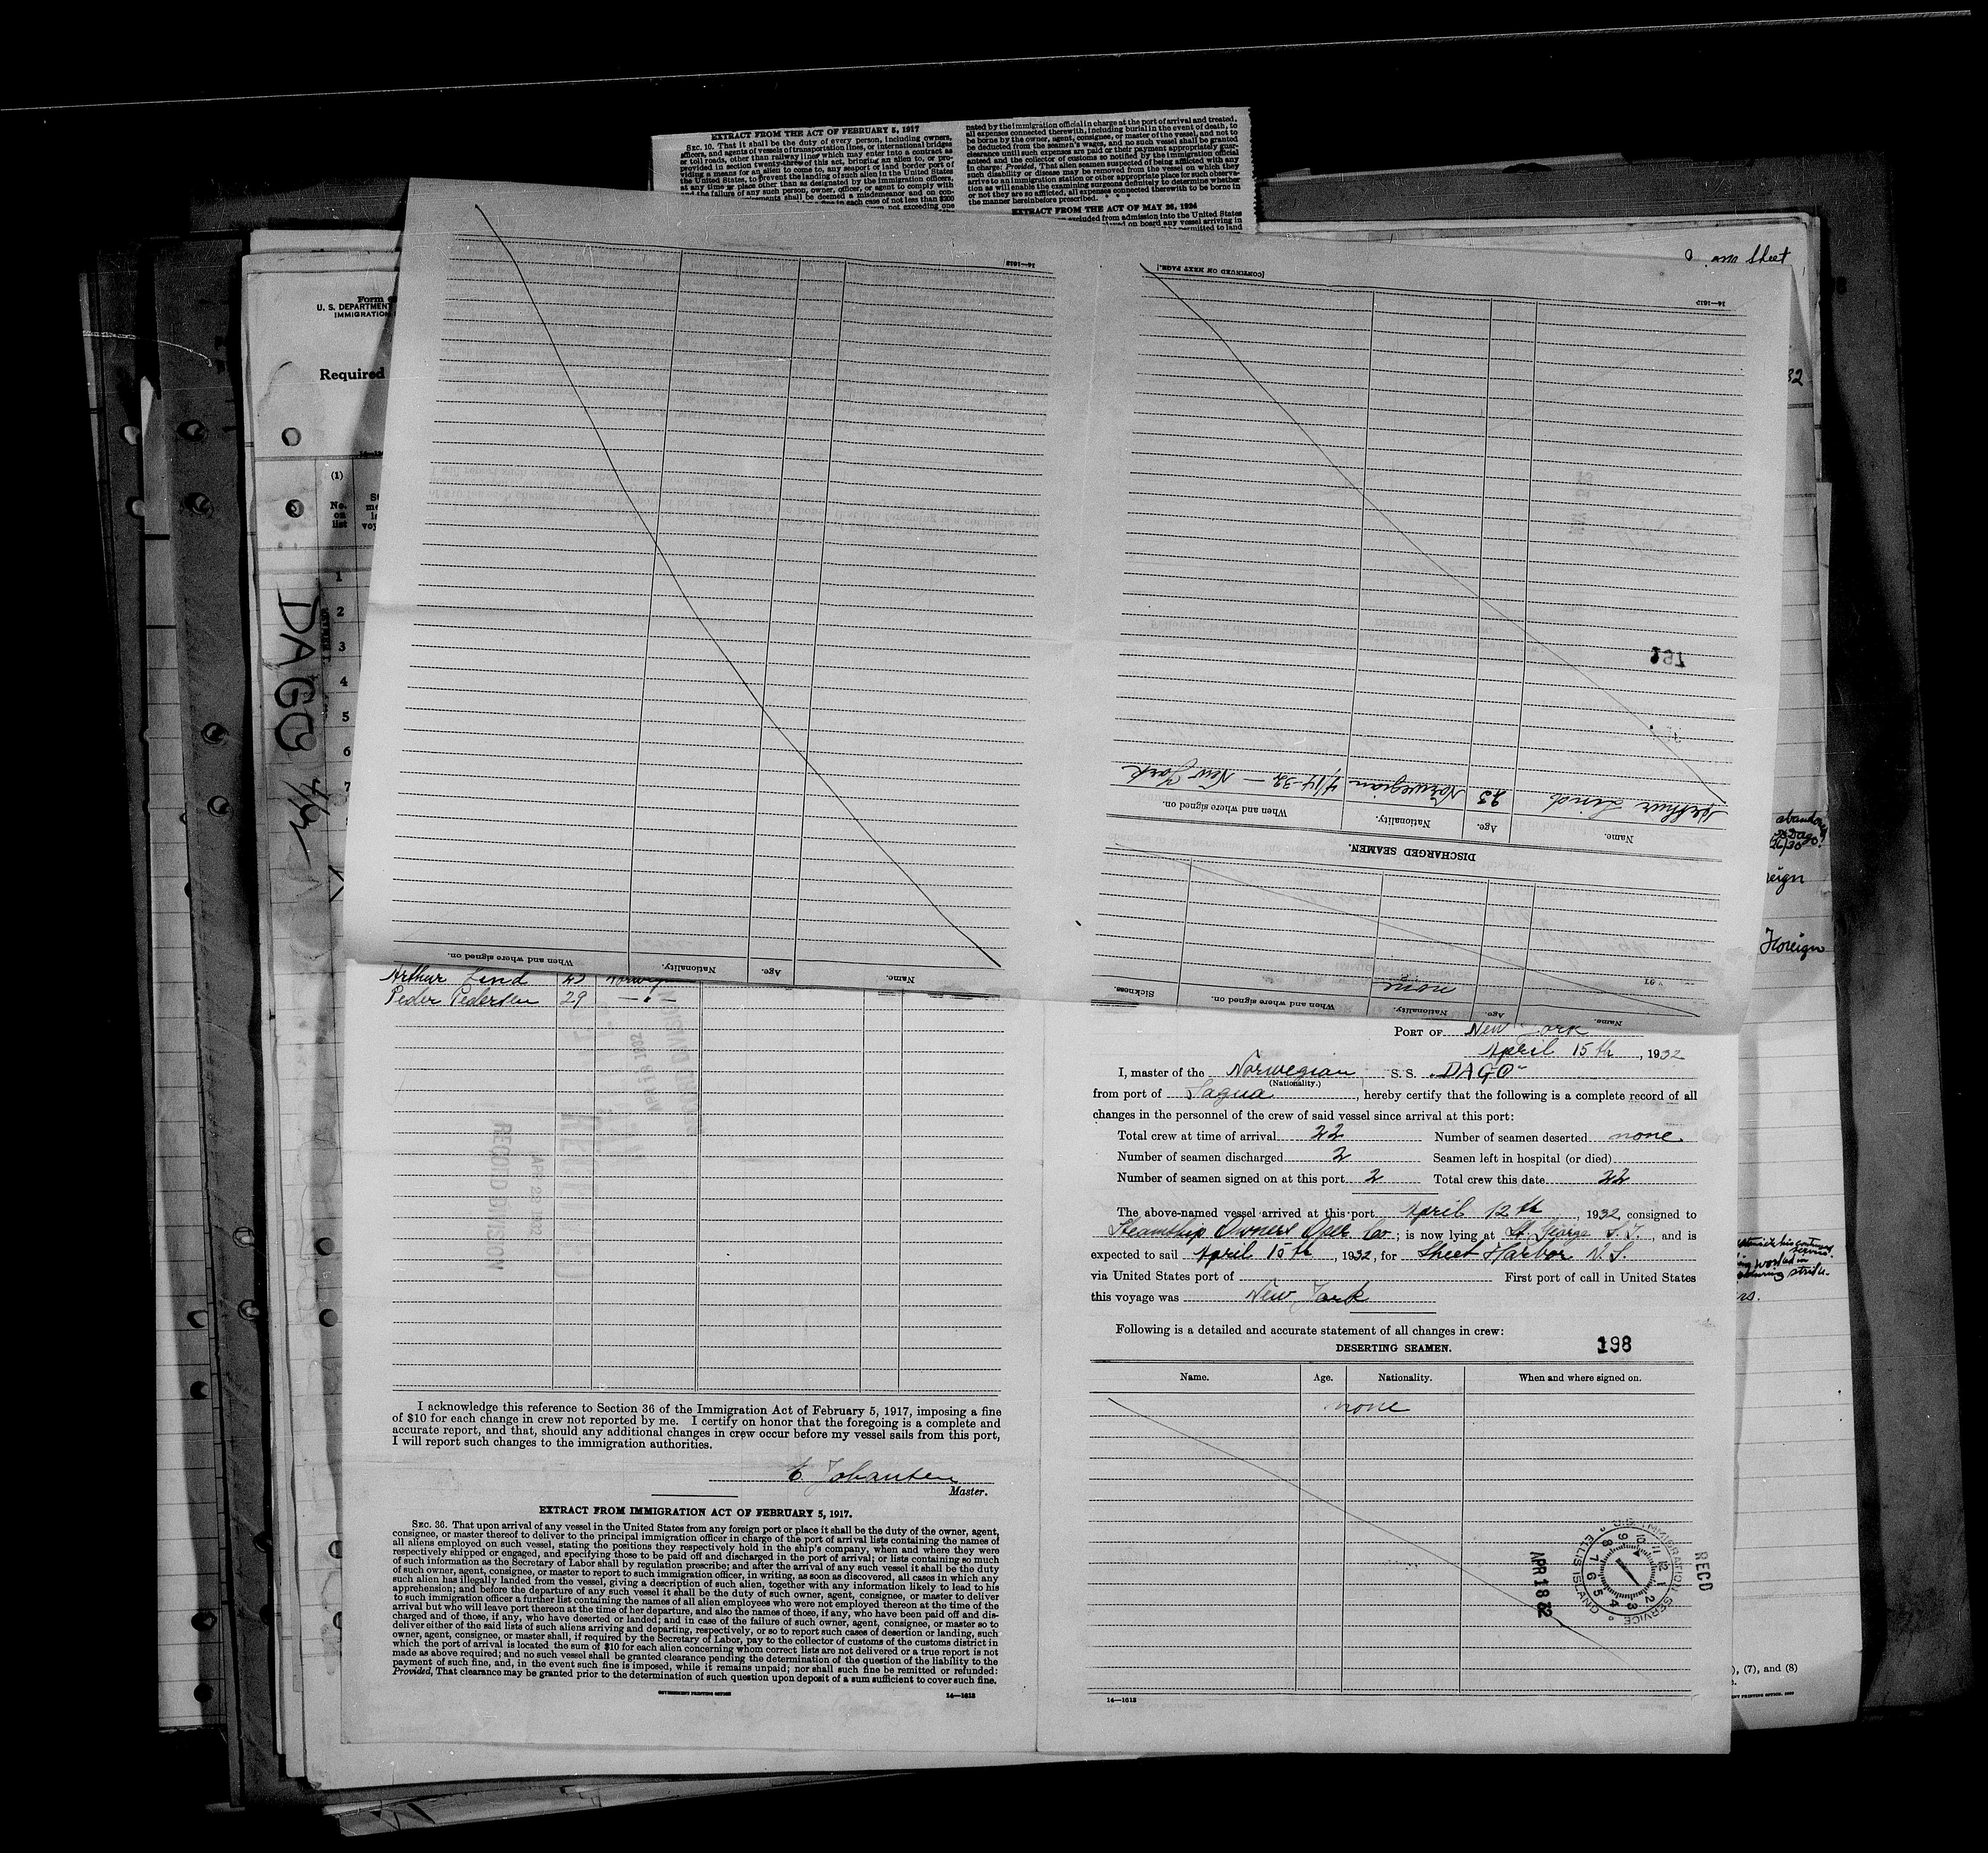 EXTRACT FROM THE ACT OF FEBRUARY 5, 1917
SEC. 10. That it shall be the duty of every person, including owners,
officers, and agents of vessels of transportation lines, or international bridges
or toll roads, other than railway lines which may enter into a contract as
provided in section twenty-three of this act, bringing an alien to, or pro-
viding a means for an alien to come to, any seaport or land border port of
the United States, to prevent the landing of such alien in the United States
at any time or place other than as designated by the immigration officers,
and the failure of any such person, owner, officer, or agent to comply with
shall be deemed a misdemeanor and on con-
in each case of not less than $200
not exceeding one
nated by the immigration official in charge at the port of arrival and treated,
all expenses connected therewith, including burial in the event of death, to
be borne by the owner, agent, consignee, or master of the vessel, and not to
be deducted from the seamen's wages, and no such vessel shall be granted
clearance until such expenses are paid or their payment appropriately guar-
anteed and the collector of customs so notified by the immigration official
in charge: Provided, That alien seamen suspected of being afflicted with any
such disability or disease may be removed from the vessel on which they
arrive to an immigration station or other appropriate place for such observa-
tion as will enable the examining surgeons definitely to determine whether
or not they are so afflicted, all expenses connected therewith to be borne in
the manner hereinbefore prescribed. * *
EXTRACT FROM THE ACT OF MAY 26, 1924
excluded from admission into the United States
on board any vessel arriving in
permitted to land
Sheet
Form
U. S. DEPARTMENT
IMMIGRATION
Required
32
(1)
No.
on
list
1
2
3
4
5
6
7
DAGO
Foreign
14—1613
Name.
Age.
Nationality.
When and where signed on.
Name.
Age.
Nationality.
When and where signed on.
Sickness.
none
DISCHARGED SEAMEN.
Name.
Age.
Nationality.
When and where signed on.
Arthur Lind 25 Norwegian 4/14-32 — New York
191
[CONTINUED ON NEXT PAGE.]
14—1613
Arthur Lind
Peder Pedersen 29 — " —
RECORD DIVISION
APR 23 1932
I acknowledge this reference to Section 36 of the Immigration Act of February 5, 1917, imposing a fine
of $10 for each change in crew not reported by me. I certify on honor that the foregoing is a complete and
accurate report, and that, should any additional changes in crew occur before my vessel sails from this port,
I will report such changes to the immigration authorities.
E Johansen
Master.
EXTRACT FROM IMMIGRATION ACT OF FEBRUARY 5, 1917.
SEC. 36. That upon arrival of any vessel in the United States from any foreign port or place it shall be the duty of the owner, agent,
consignee, or master thereof to deliver to the principal immigration officer in charge of the port of arrival lists containing the names of
all aliens employed on such vessel, stating the positions they respectively hold in the ship's company, when and where they were
respectively shipped or engaged, and specifying those to be paid off and discharged in the port of arrival; or lists containing so much
of such information as the Secretary of Labor shall by regulation prescribe; and after the arrival of any such vessel it shall be the duty
of such owner, agent, consignee, or master to report to such immigration officer, in writing, as soon as discovered, all cases in which any
such alien has illegally landed from the vessel, giving a description of such alien, together with any information likely to lead to his
apprehension; and before the departure of any such vessel it shall be the duty of such owner, agent, consignee, or master to deliver
to such immigration officer a further list containing the names of all alien employees who were not employed thereon at the time of the
arrival but who will leave port thereon at the time of her departure, and also the names of those, if any, who have been paid off and dis-
charged and of those, if any, who have deserted or landed; and in case of the failure of such owner, agent, consignee, or master so to
deliver either of the said lists of such aliens arriving and departing, respectively, or so to report such cases of desertion or landing, such
owner, agent, consignee, or master shall, if required by the Secretary of Labor, pay to the collector of customs of the customs district in
which the port of arrival is located the sum of $10 for each alien concerning whom correct lists are not delivered or a true report is not
made as above required; and no such vessel shall be granted clearance pending the determination of the question of the liability to the
payment of such fine, and, in the event such fine is imposed, while it remains unpaid; nor shall such fine be remitted or refunded:
Provided, That clearance may be granted prior to the determination of such question upon deposit of a sum sufficient to cover such fine.
GOVERNMENT PRINTING OFFICE
14—1613
PORT OF New York
April 15th, 1932
I, master of the Norwegian S. S. "DAGO"
(Nationality.)
from port of Sagua, hereby certify that the following is a complete record of all
changes in the personnel of the crew of said vessel since arrival at this port:
Total crew at time of arrival 22 Number of seamen deserted none.
Number of seamen discharged 2 Seamen left in hospital (or died)
Number of seamen signed on at this port 2 Total crew this date 22
The above-named vessel arrived at this port April 12th, 1932, consigned to
Steamship Owners Oper Co; is now lying at St. George S. I., and is
expected to sail April 15th, 1932, for Sheet Harbor N. S.
via United States port of First port of call in United States
this voyage was New York
Following is a detailed and accurate statement of all changes in crew:
198
DESERTING SEAMEN.
Name. Age. Nationality. When and where signed on.
none
RECD
U.S. IMMIGRATION SERVICE
ELLIS ISLAND
APR 18 32
14—1613
), (7), and (8)